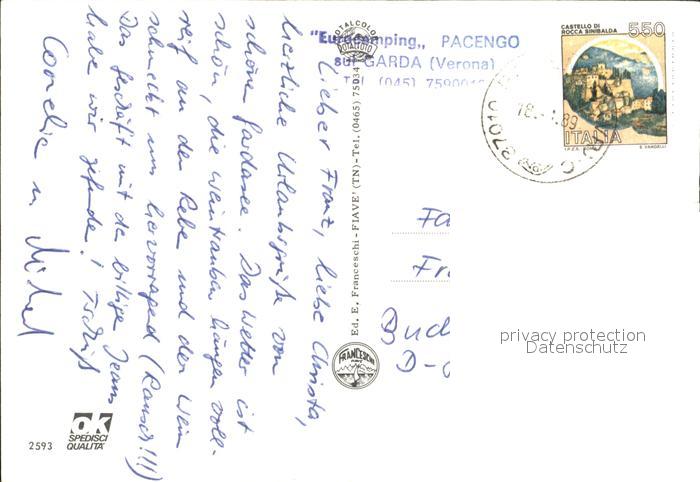 Lieber Franz, liebe Christa,
herzliche Urlaubsgrüße vom
schönen Gardasee. Das Wetter ist
schön, die Weintrauben hängen voll-
reif an den Rebe und der Wein
schmeckt uns hervorragend (Rausch!!!)
Das Geschäft mit den billigen Jeans
habe wir gefunden! Tschüß
Cornelia u. Michael
"Eurocamping„ PACENGO
sul GARDA (Verona)
Tel. (045) 7590012
TOTALCOLOR
Ed. E. Franceschi - FIAVE' (TN) - Tel. (0465) 75034
FRANCESCHI
CASTELLO DI
ROCCA SINIBALDA
550
ITALIA
I.P.Z.S.
E. VANGELLI
18. .89
37010
Fa
Fr
Buc
D-
privacy protection
Datenschutz
ok
SPEDISCI
QUALITA'
2593